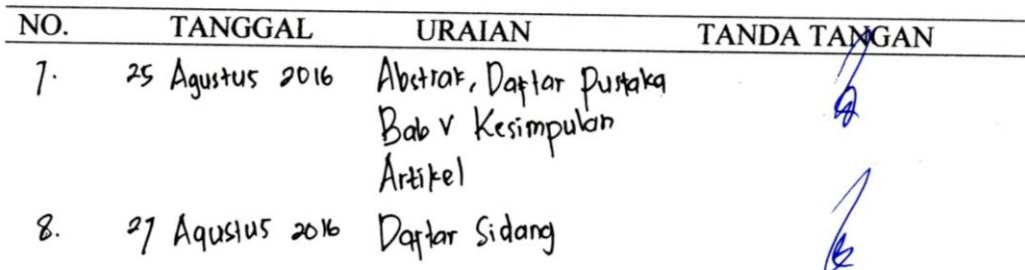 NO. TANGGAL URAIAN TANDA TANGAN
7. 25 Agustus 2016 Abstrak, Daftar Pustaka
Bab V Kesimpulan
Artikel
8. 27 Agustus 2016 Daftar Sidang